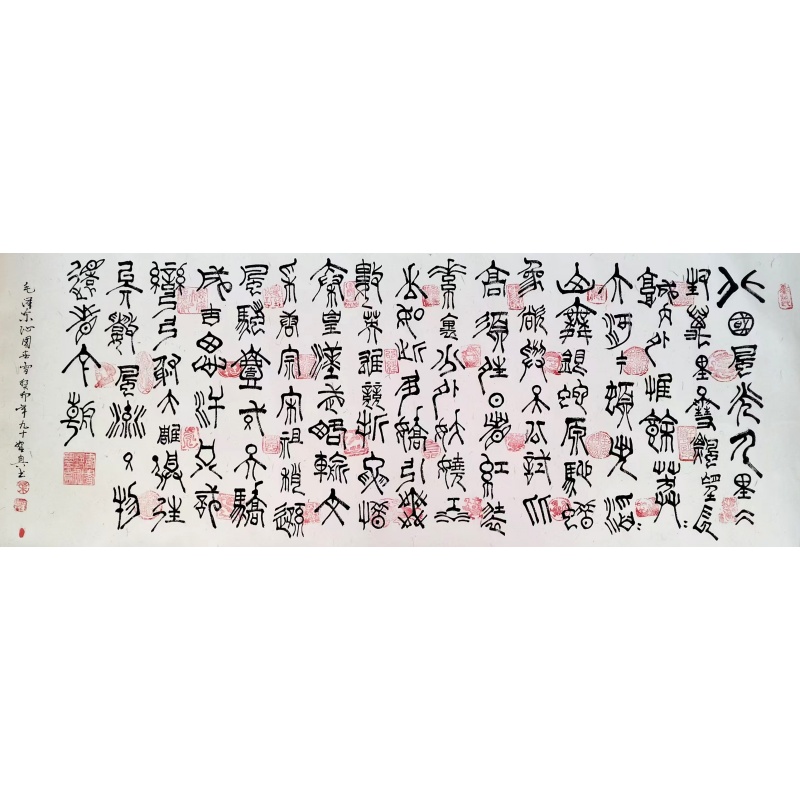 北國風光千里冰
封萬里雪飄望長
城内外惟餘莽〻
大河上下頓失滔〻
山舞銀蛇原馳蠟
象欲與天公試比
高須晴日看紅裝
素裹分外妖嬈江
山如此多嬌引無
數英雄競折腰惜
秦皇漢武略輸文
采唐宗宋祖稍遜
風騷壹代天驕
成吉思汗只識
彎弓射大雕俱往
矣數風流人物
還看今朝
毛澤东沁園春雪癸卯年九十